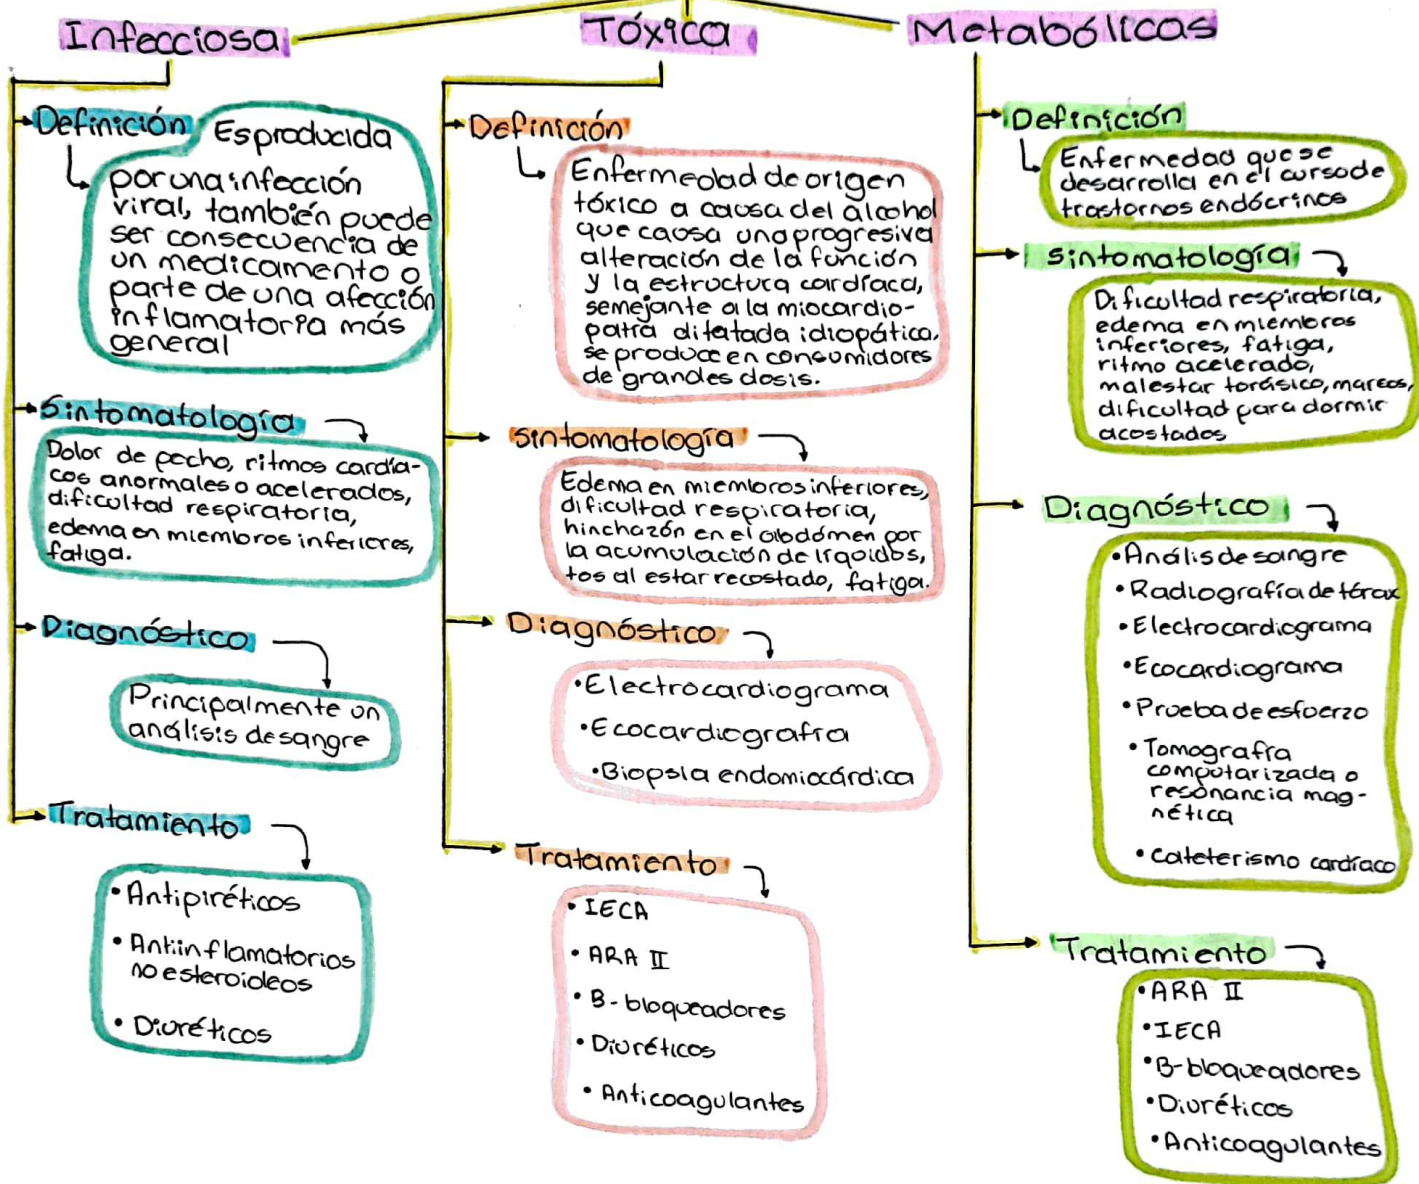 Infecciosa
Definición
Es producida
por una infección
viral, también puede
ser consecuencia de
un medicamento o
parte de una afección
inflamatoria más
general
Sintomatología
Dolor de pecho, ritmos cardía-
cos anormales o acelerados,
dificultad respiratoria,
edema en miembros inferiores,
fatiga.
Diagnóstico
Principalmente un
análisis de sangre
Tratamiento
• Antipiréticos
• Antiinflamatorios
no esteroideos
• Diuréticos
Tóxica
Definición
Enfermedad de origen
tóxico a causa del alcohol
que causa una progresiva
alteración de la función
y la estructura cardíaca,
semejante a la miocardio-
patía dilatada idiopática.
se produce en consumidores
de grandes dosis.
Sintomatología
Edema en miembros inferiores,
dificultad respiratoria,
hinchazón en el abdómen por
la acumulación de líquidos,
tos al estar recostado, fatiga.
Diagnóstico
• Electrocardiograma
• Ecocardiografía
• Biopsia endomiocárdica
Tratamiento
• IECA
• ARA II
• B-bloqueadores
• Diuréticos
• Anticoagulantes
Metabólicas
Definición
Enfermedad que se
desarrolla en el curso de
trastornos endócrinos
Sintomatología
Dificultad respiratoria,
edema en miembros
inferiores, fatiga,
ritmo acelerado,
malestar torásico, mareos,
dificultad para dormir
acostados
Diagnóstico
• Análisis de sangre
• Radiografía de tórax
• Electrocardiograma
• Ecocardiograma
• Prueba de esfuerzo
• Tomografía
computarizada o
resonancia mag-
nética
• Cateterismo cardíaco
Tratamiento
• ARA II
• IECA
• B-bloqueadores
• Diuréticos
• Anticoagulantes